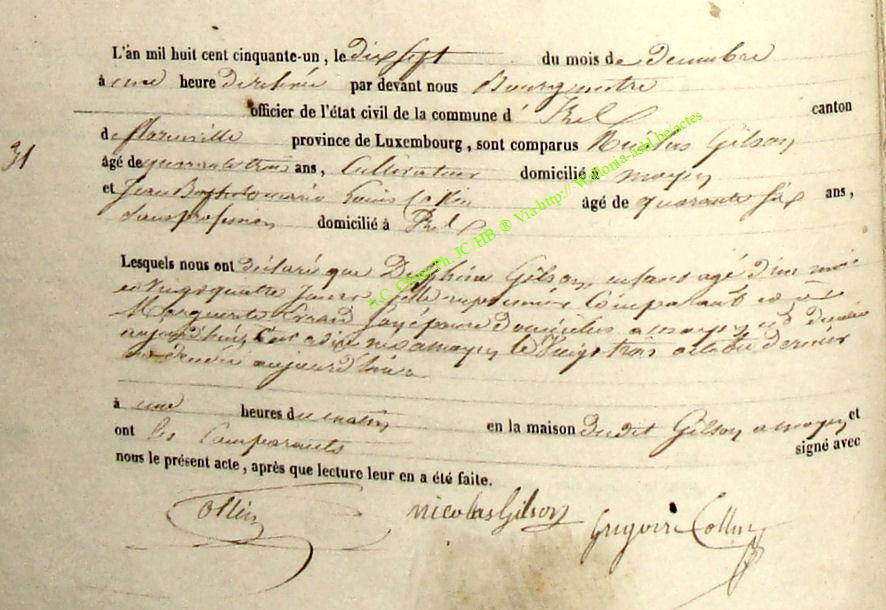 L'an mil huit cent cinquante-un, le dix sept du mois de Décembre
à une heure de relevée par devant nous Bourgmestre
officier de l'état civil de la commune d' Izel canton
de florenville province de Luxembourg, sont comparus Nicolas Gilson
31
âgé de quarante trois ans, Cultivateur domicilié à moyen
et Jean Collin âgé de quarante six ans,
sans profession domicilié à Izel
Lesquels nous ont déclaré que Delphine Gilson, enfant agé d'un mois
et vingt quatre jours, fille du premier Comparant et de
Marguerite son épouse domiciliés a moyen est décédée
aujourd'hui, née a moyen le Vingt trois octobre dernier
aujourd'hui
à une heures du matin en la maison dudit Gilson a moyen et
ont les Comparants signé avec
nous le présent acte, après que lecture leur en a été faite.
ollin nicolas Gilson Grégoire Collin
A.C. JC/HB ® Via http:// Wallonia-asbl.be/actes